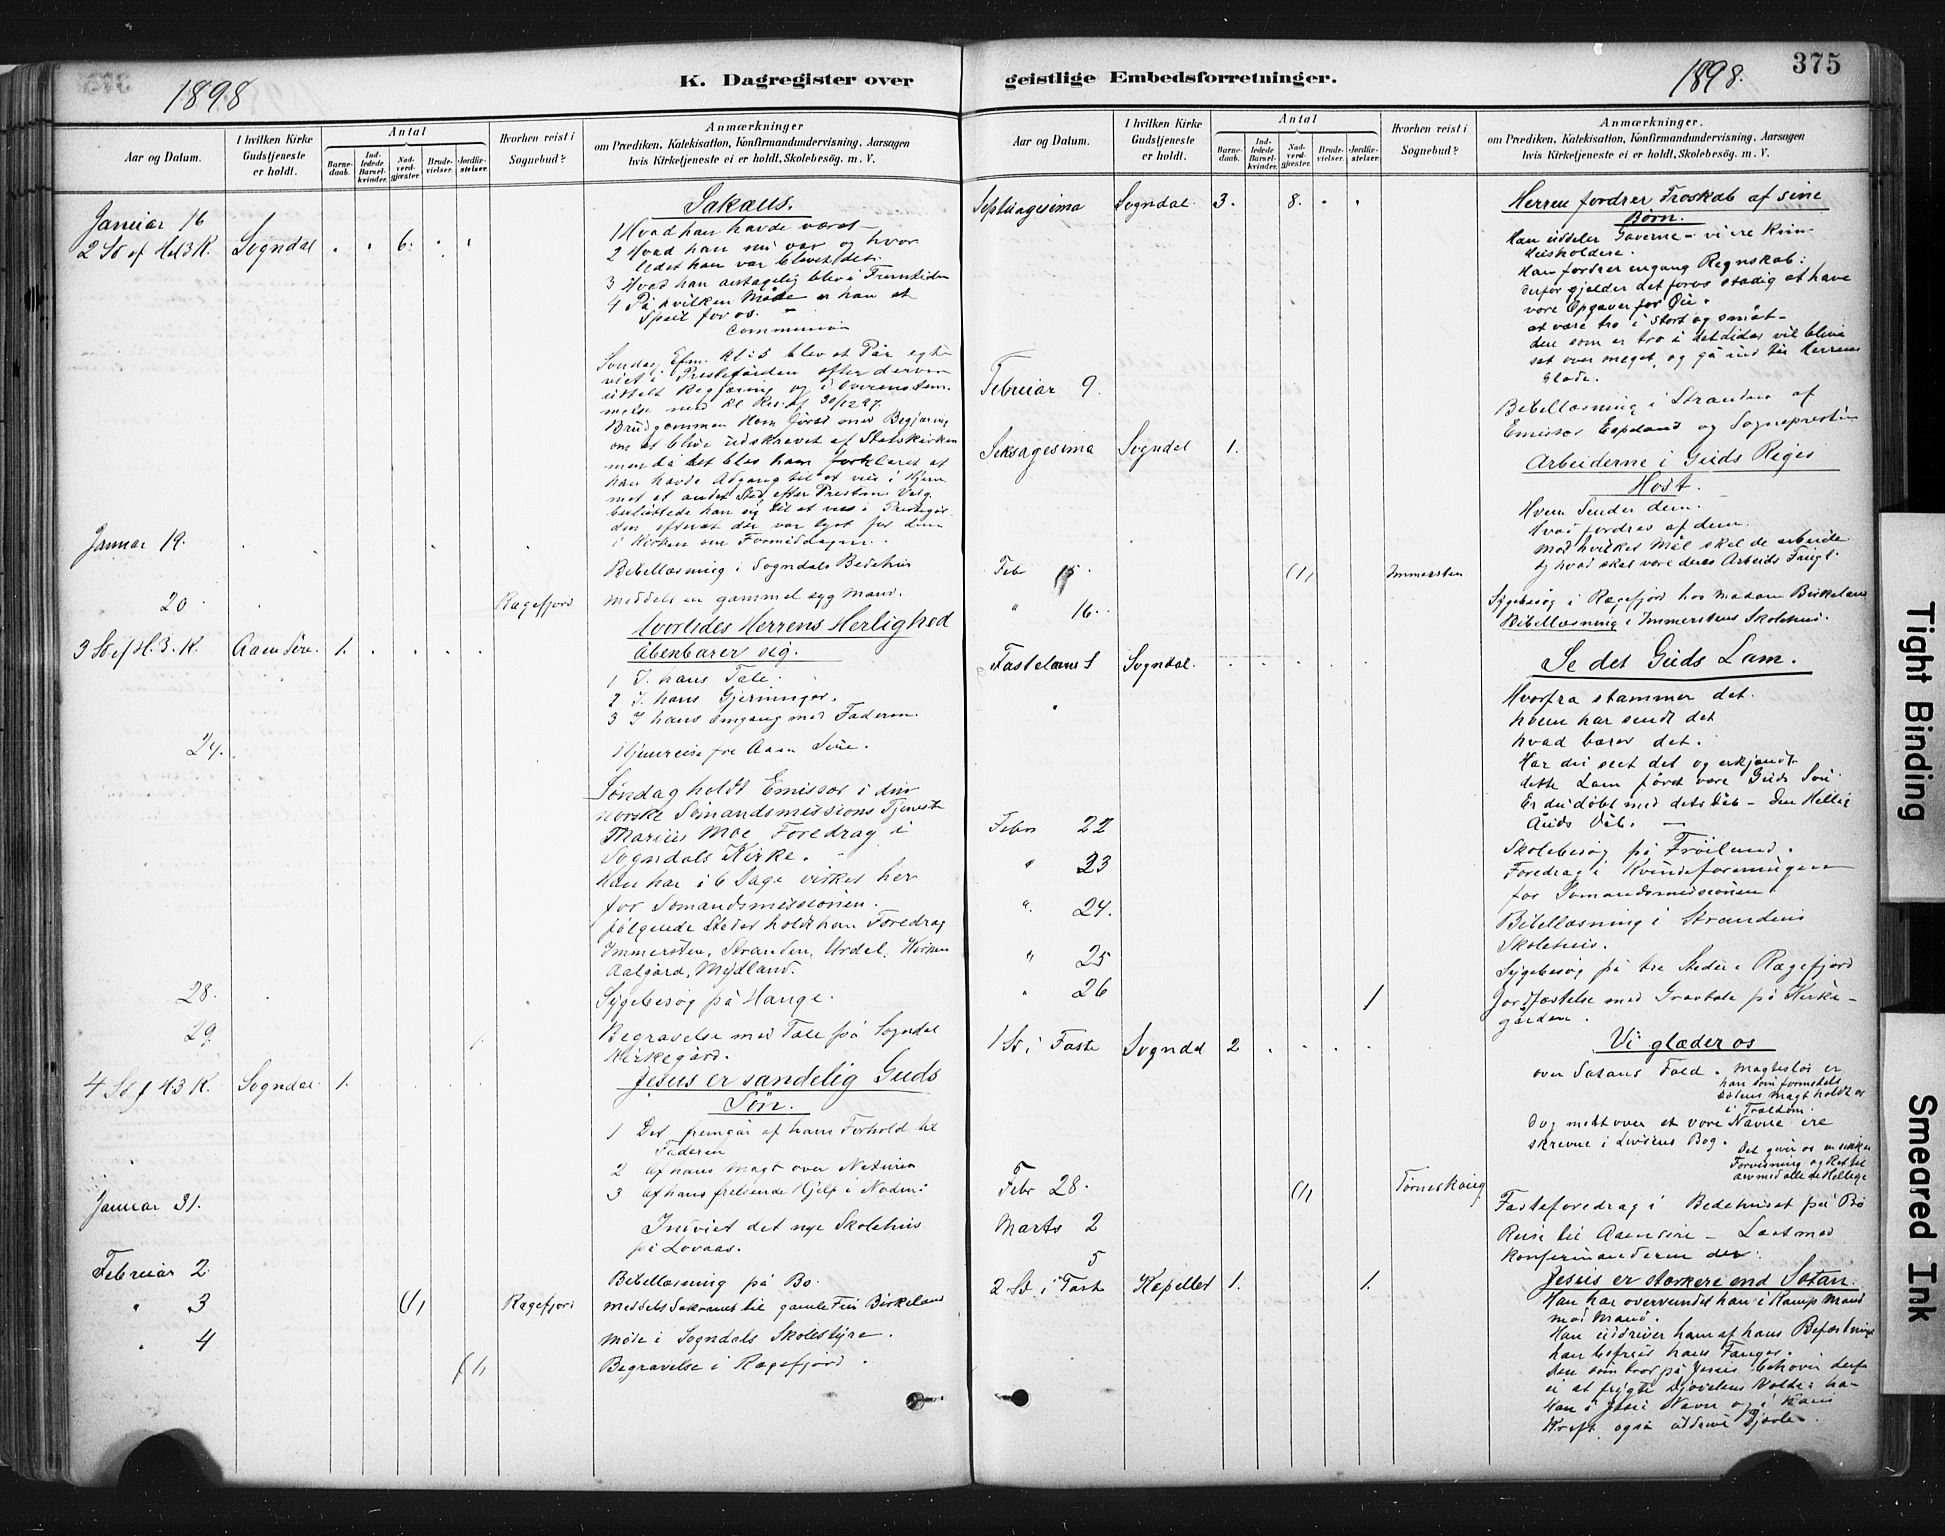 375
1898
K. Dagregister over
Aar og Datum.
I hvilken Kirke Gudstjeneste er holdt.
Antal
Barne-daab.
Ind-ledede Barsel-kvinder.
Nad-verd-gjæster.
Brude-vielser.
Jordfæ-stelser.
Hvorhen reist i Sognebud?
Anmærkninger
om Prædiken, Katekisation, Konfirmandundervisning, Aarsagen
hvis Kirketjeneste ei er holdt, Skolebesøg. m. V.
Januar 16
2 S. ef Hel 3 K. Sogndal 6.
Sakæus.
1 Hvad han havde været
2 Hvad han nu var og hvor
ledet han var blevet det.
3 Hvad han antagelig blev i Fremtiden
4 På hvilken Måde er han et
Speil for os.
Communion
Søndag Efm. Kl. 5 blev et Par egte
viet i Prestegården efter derom
Brudgommen
om at blive udskrevet af Statskirken
men da det blev ham forklaret at
han havde Adgang til at vies i Hjem
met et andet Sted efter Prestens Valg
besluttede han sig til at vies i Prestegår
den efterat der var lyst for dem
i Kirken om Formiddagen.
Januar 19.
Bibellæsning i Sogndals Bedehus
20. Rægefjord
meddele en gammel syg Mand.
3 S. ef H. 3. K. Aaen Sire. 1.
Hvorledes Herrens Herlighed
åbenbarer sig.
1 I. hans Tale.
2 I. hans Gjerninger.
3 I hans Omgang med Faderen.
24. Hjemreise fra Aaen Sire.
Søndag holdt Emissær i den
norske Sømandsmissions Tjeneste
Marius Moe Foredrag i
Sogndals Kirke.
Han har i 6 Dage virket her
for Sømandsmissionen.
følgende Steder holdt han Foredrag
Immersten, Stranden, Urdal, Kirken
Aalgård, Mydland.
28. Sygebesøg på Hauge.
29. Begravelse med Tale på Sogndal
Kirkegård.
4 S. f H 3 K. Sogndal 1.
Jesus er sandelig Guds
Søn.
1 Det fremgår af hans Forhold til
Faderen
2 af hans Magt over Naturen
3 af hans frelsende Hjelp i Nøden.
Januar 31.
Indviet det nye Skolehus
på Lovaas.
Februar 2. Bibellæsning på Bø.
" 3 (1) Rægefjord meddelt Sakramet til gamle Birkeland
" 4 Møde i Sogndals Skolestyre.
(1) Begravelse i Rægefjord.
geistlige Embedsforretninger.
1898.
375
Aar og Datum.
I hvilken Kirke Gudstjeneste er holdt.
Antal
Barne-daab.
Ind-ledede Barsel-kvinder.
Nad-verd-gjæster.
Brude-vielser.
Jordfæ-stelser.
Hvorhen reist i Sognebud?
Anmærkninger.
om Prædiken, Katekisation, Konfirmandundervisning, Aarsagen
hvis Kirketjeneste ei er holdt, Skolebesøg. m. V.
Septuagesima Sogndal. 3. 8.
Herren fordrer Troskab af sine
Børn.
Han uddeler Gaverne - vi ere kun
Husholdere.
Han fordrer engang Regnskab:
derfor gjelder det for os stadig at have
vore Opgaver for Øie.
at være tro i stort og småt-
den som er tro i det lidet vil blive
sat over meget, og gå ind til Herrens
Glæde.
Februar 9.
Bibellæsning i Stranden af
Emissær Espeland og Sognepresten
Seksagesima Sogndal 1.
Arbeiderne i Guds Riges
Høst.
Hvem sender dem.
Hvad fordres af dem.
Mod hvilket Mål skal de arbeide
og hvad skal være deres Arbeids Frugt.
Feb 15. (1) Immersten
Sygebesøg i Rægefjord hos Madam Birkeland
" 16. Bibellæsning i Immerstens Skolehus.
Fastelavns S Sogndal.
Se det Guds Lam.
Hvorfra stammer det.
hvem har sendt det
hvad bærer det.
Har du seet det og erkjendt
dette Lam først være Guds Søn
Er du døbt med dets Dåb - Den Hellig
Ånds Dåb.
Febr 22 Skolebesøg på Frøilund.
" 23 Foredrag i Kvindeforeningen
for Sømandsmissionen.
" 24. Bibellæsning i Strandens
Skolehus.
" 25 Sygebesøg på tre Steder i Rægefjord
" 26 1 Jordfæstelse med Gravtale på Kirke-
gården.
1 S. i Faste Sogndal 2
Vi glæder os
over Satans Fald. Magtesløs er
han som formedels
Dødens Magt holdt os
i Trældom.
Dog mest over at vore Navne ere
skrevne i Livsens Bog.
Det giver os en sikker
Forvisning og Ret til
arv med alle de Hellige
Febr 28. (1) Torneskoug
Fasteforedrag i Bedehuset på Bø
Marts 2
Reise til Aaensire - Læst med
5 Konfirmanderne der.
2 S. i Fast Kapellet 1. 1.
Jesus er stærkere end Satan.
Han har overvundet han i Kamp Mand
mod Mand.
Han uddriver ham af hans Befæstning
han befried hans Fanger.
den som tror på Jesus behøver derfor
ei at frygte Djævelens Vælde: han
kan i Jesu Navn og i hans
Kraft også uddrive Djævle.
Tight Binding
Smeared Ink